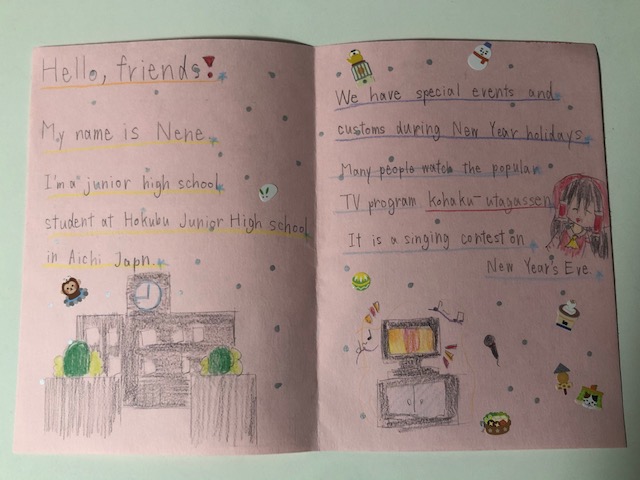 Hello, friends!
My name is Nene.
I'm a junior high school
student at Hokubu Junior High school
in Aichi Japn.
We have special events and
customs during New Year holidays.
Many people watch the popular
TV program Kohaku-utagassen.
It is a singing contest on
New Year's Eve.